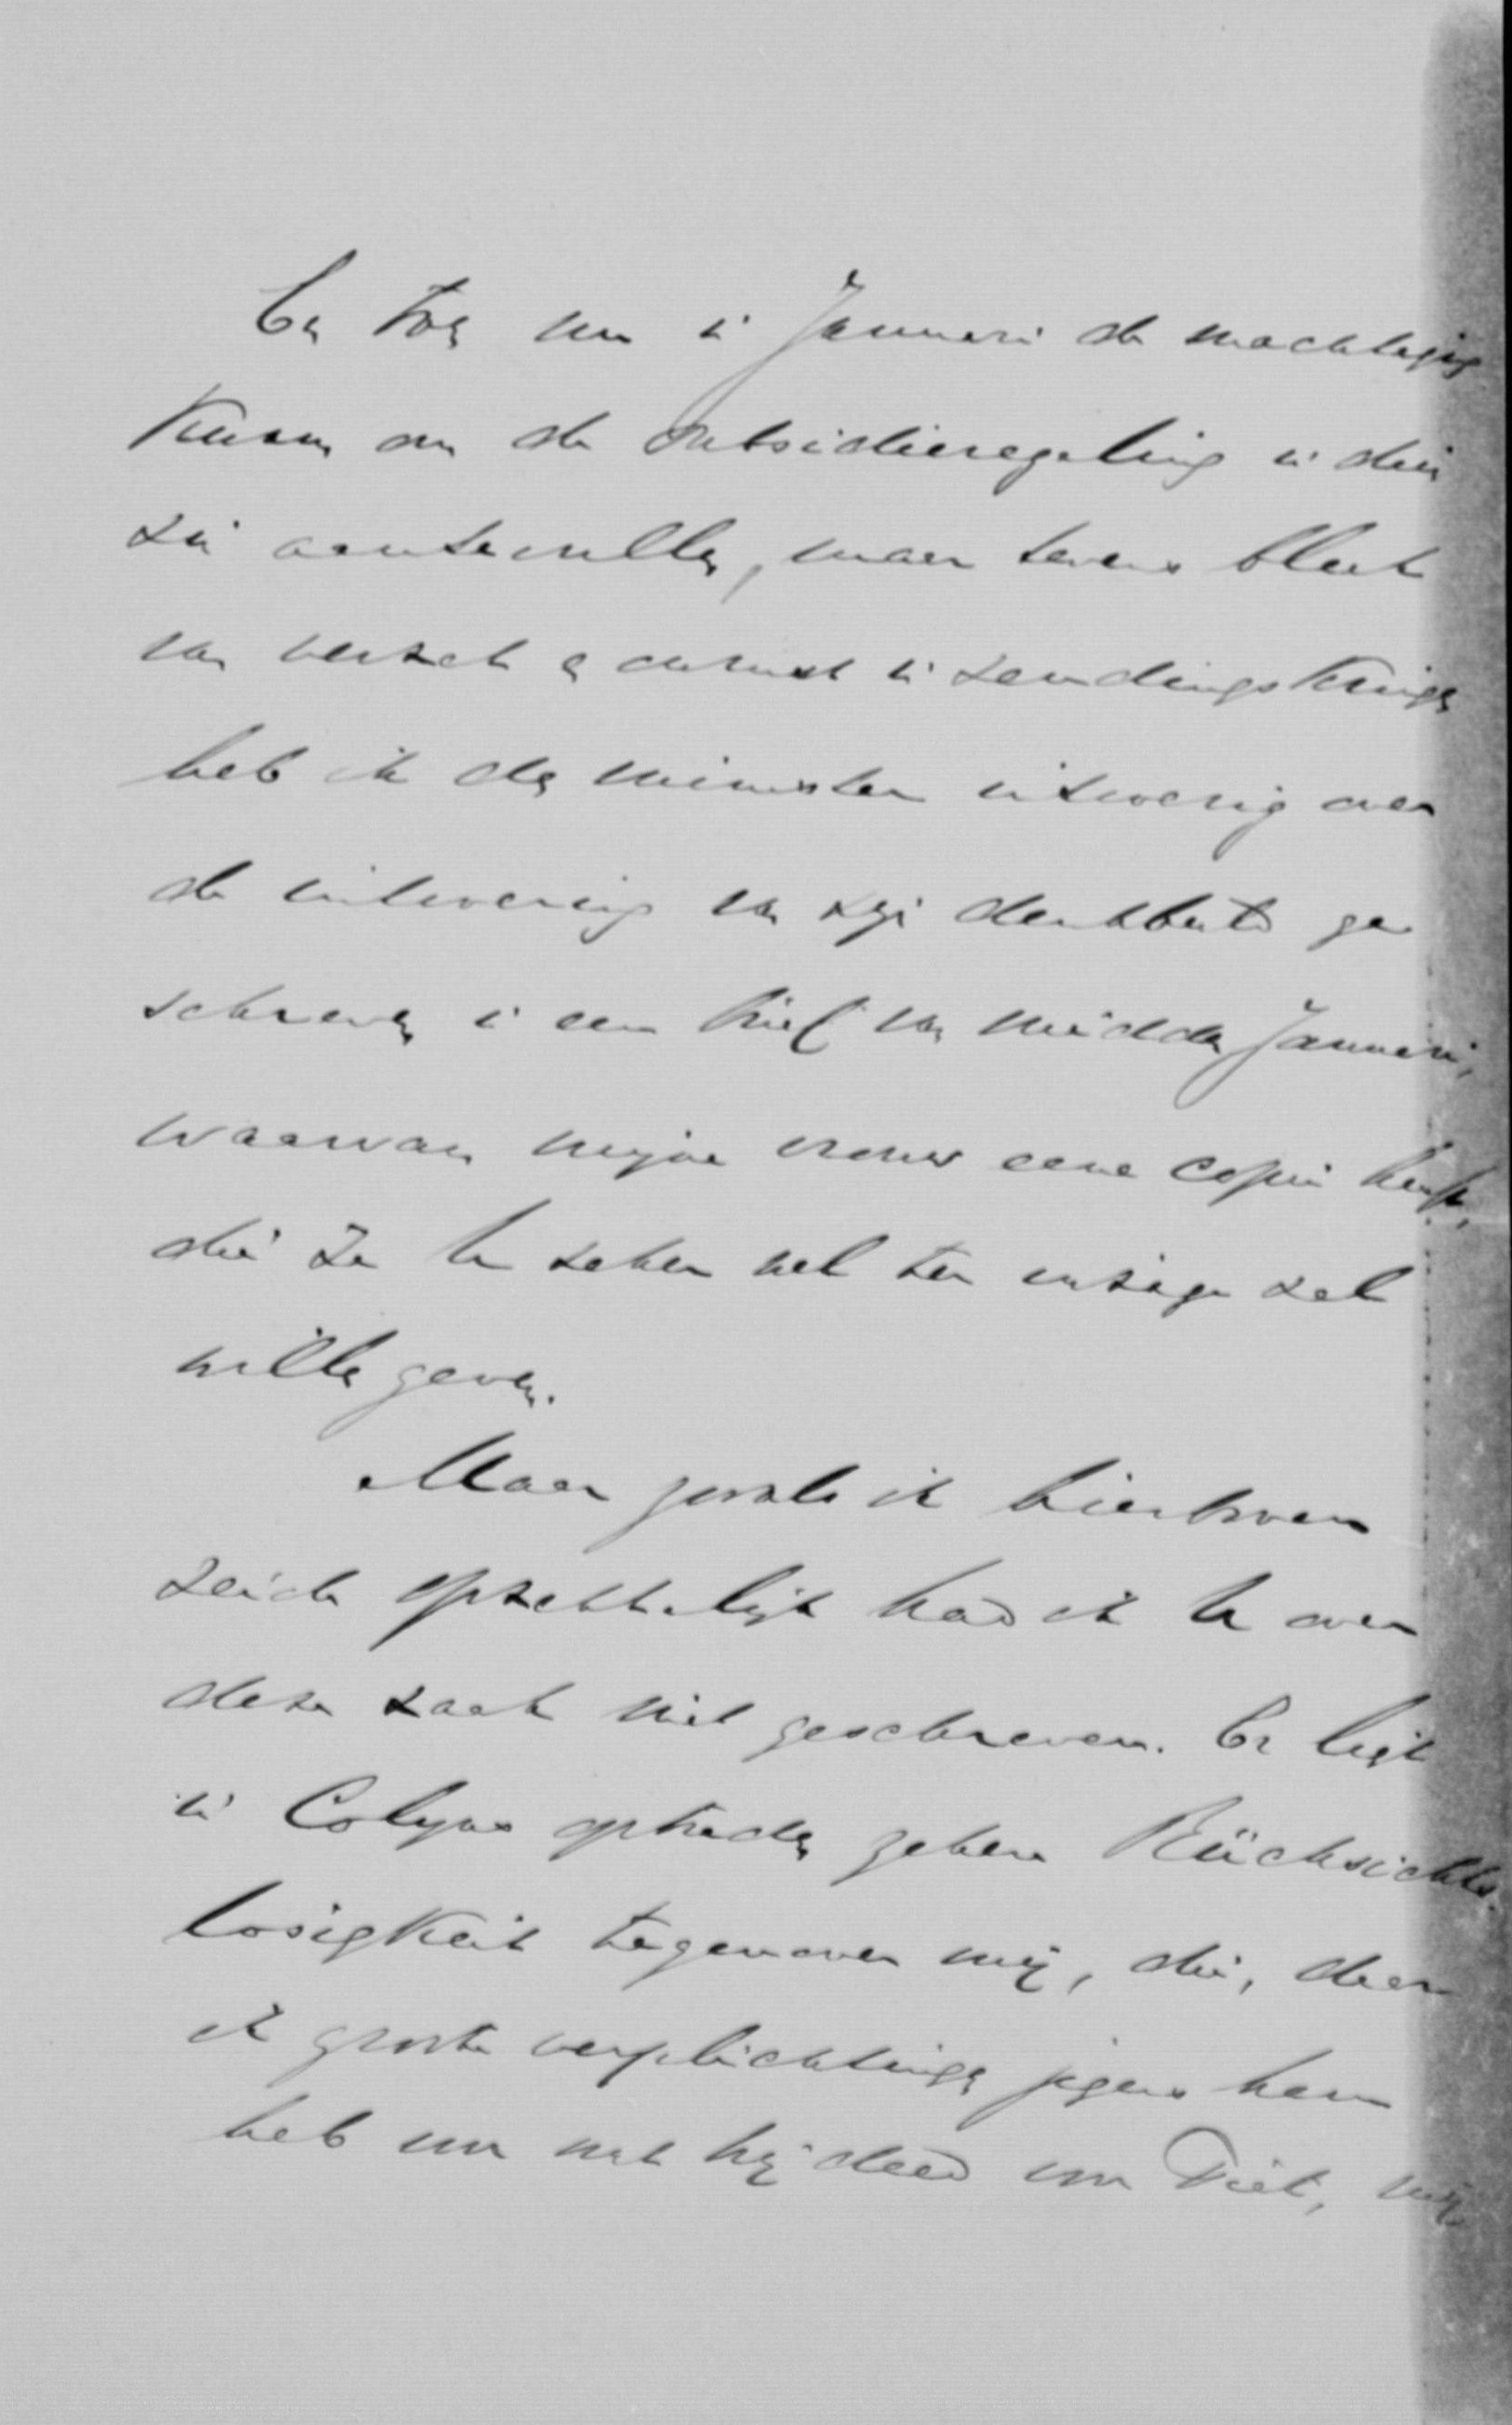 En toen nu in Januari de machtiging
kwam om de subsidieregeling in dien
zin aantevullen, maar tevens bleek
van verzet en onrust in zendingskringen
heb ik den minister uitvoerig over
de uitvoering van zijn denkbeeld ge
schreven in een brief van midden Januari,
waarvan mijne vrouw eene copie heeft,
die ze U zeker wel ter inzage zal
willen geven.
Maar zooals ik hierboven
zeide opzettelijk had ik U over
deze zaak niet geschreven. Er ligt
in Colijns optreden zekere Rücksichts
losigkeit tegenover mij, die, daar
ik groote verplichtingen jegens hem
heb om wat hij deed voor Piet, mij